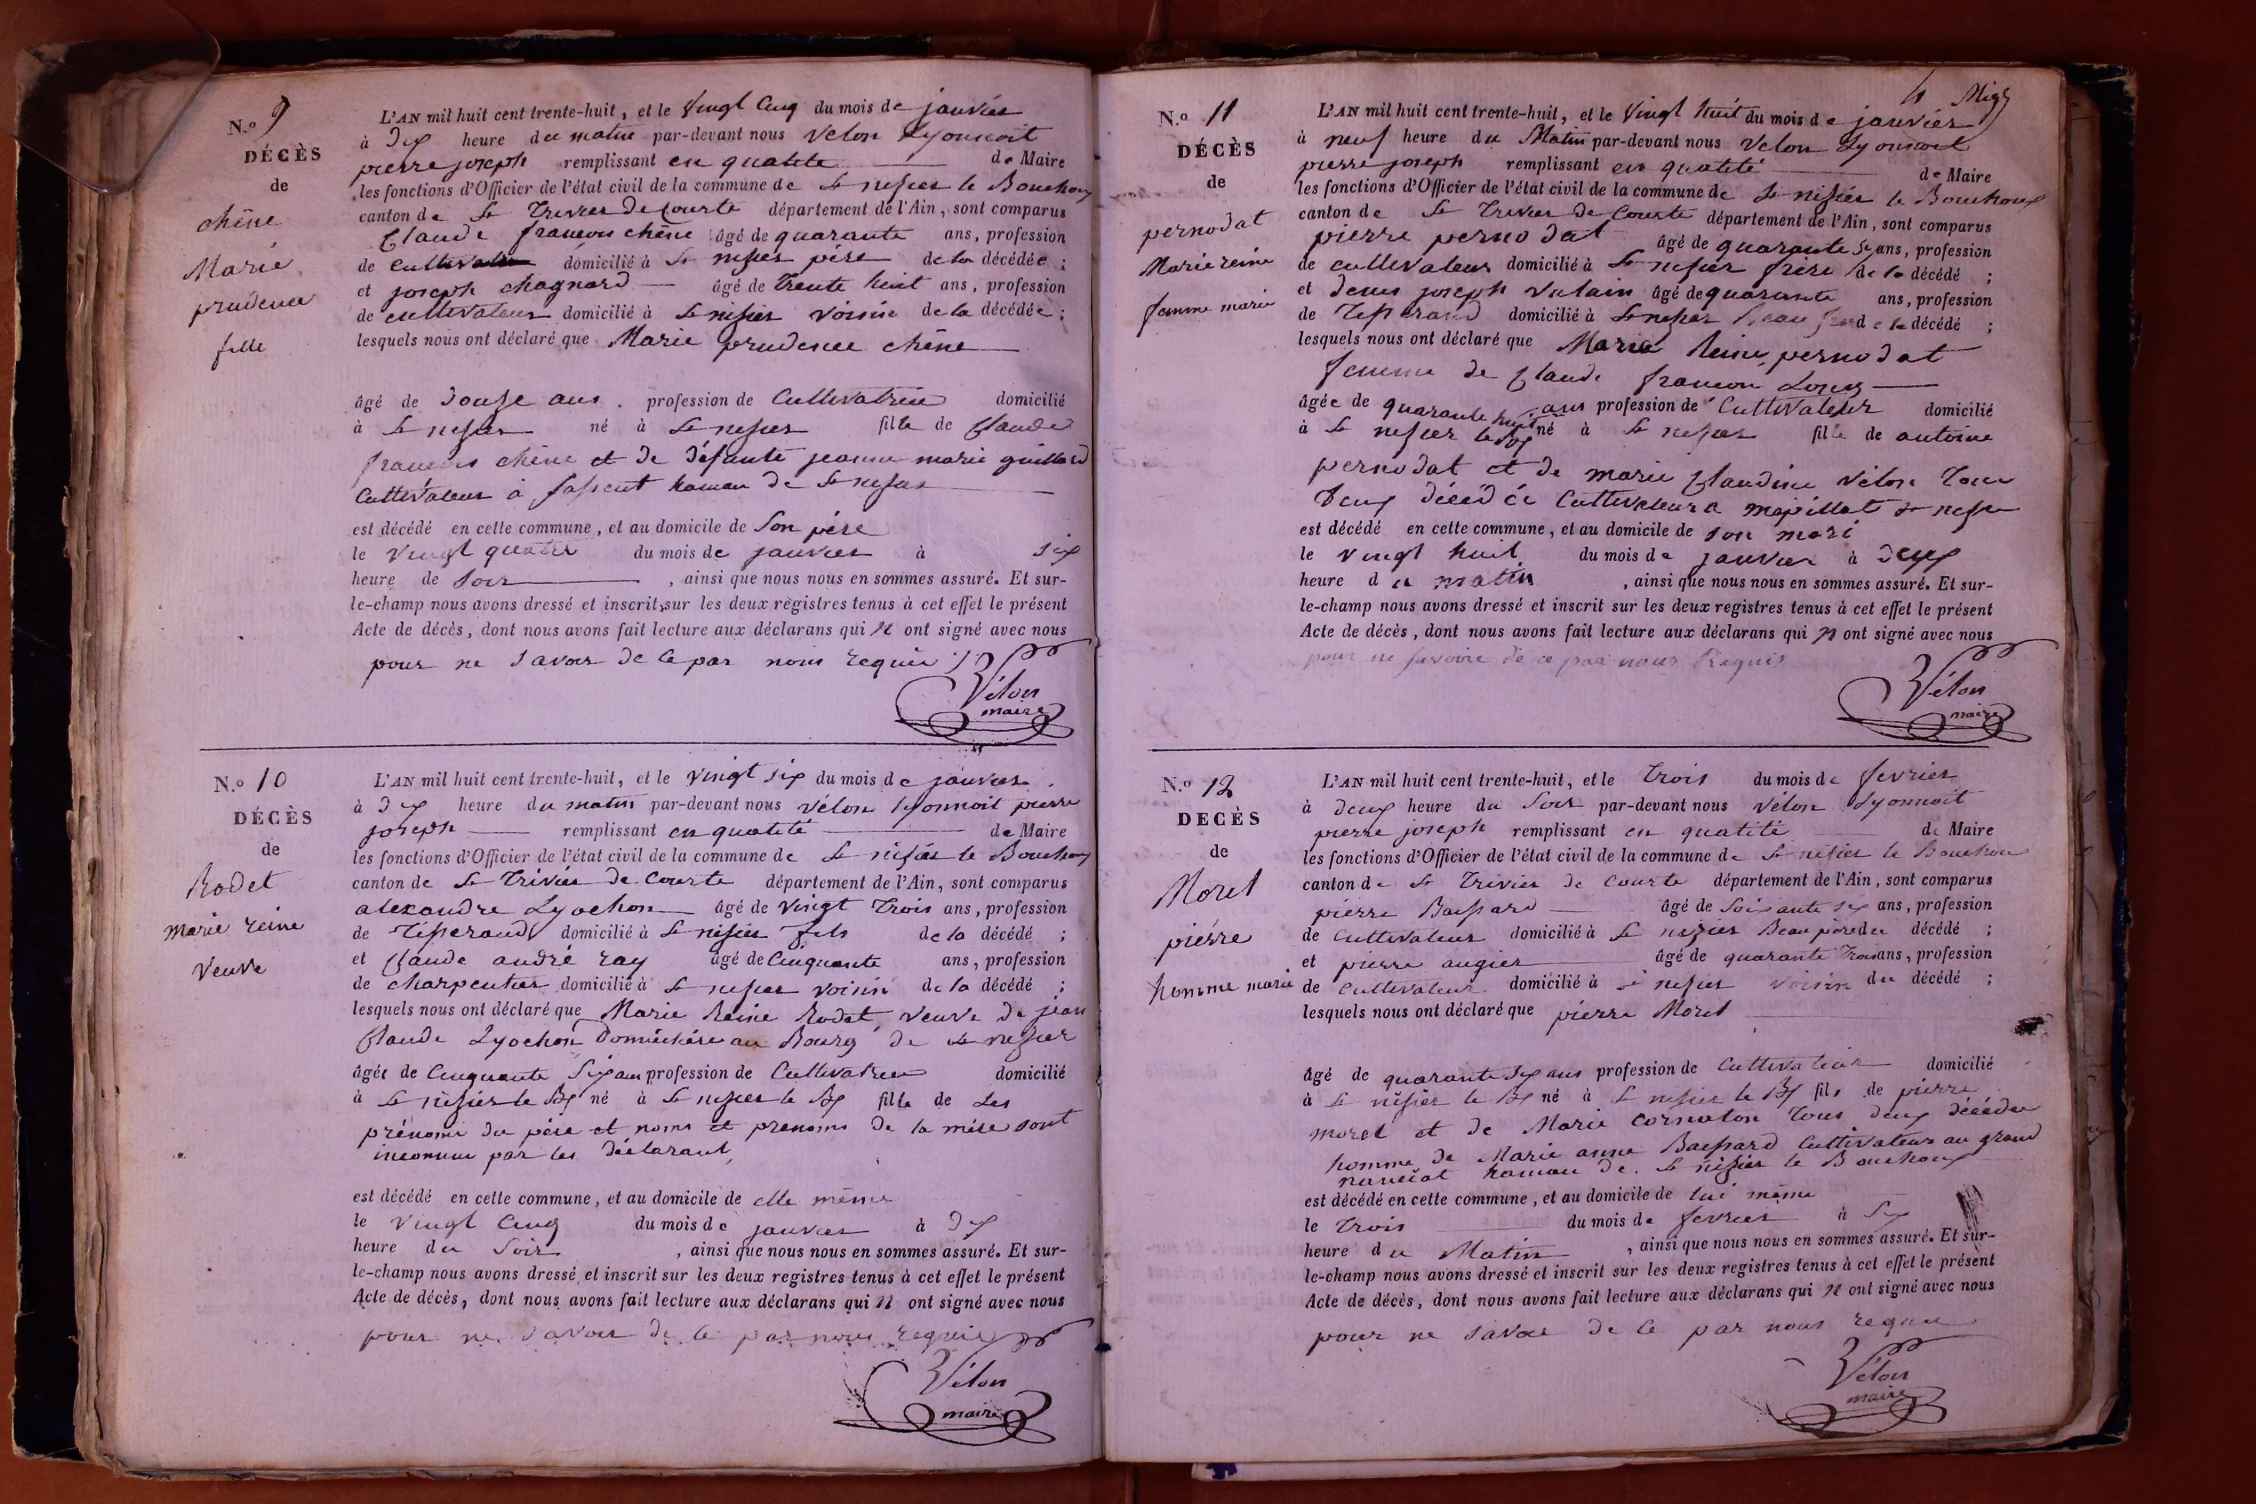 N.o 9
DÉCÈS
de
chêne
Marie
prudence
fille
L'AN mil huit cent trente-huit, et le vingt cinq du mois de janvier
à dix heure du matin par-devant nous velon Lyonnoit
pierre joseph remplissant en qualité de Maire
les fonctions d'Officier de l'état civil de la commune de St nisier le Bouchoux
canton de St Trivier De Courte département de l'Ain, sont comparus
Claude francois chêne âgé de quarante ans, profession
de Cultivateur domicilié à St nisier père de la décédée ;
et joseph chagnard âgé de Trente huit ans, profession
de cultivateur domicilié à St nisier voisin de la décédée ;
lesquels nous ont déclaré que Marie prudence chêne
âgé de Douze ans. profession de Cultivatrice domicilié
à St nisier né à St nisier fille de Claude
francois chêne et de défunte jeanne marie guillard
Cultivateur à hameau de St nisier
est décédé en cette commune, et au domicile de Son père
le vingt quatre du mois de janvier à six
heure de soir , ainsi que nous nous en sommes assuré. Et sur-
le-champ nous avons dressé et inscrit sur les deux registres tenus à cet effet le présent
Acte de décès, dont nous avons fait lecture aux déclarans qui n ont signé avec nous
pour ne savoir de ce par nous requis
Vélon
maire
N.o 10
DÉCÈS
de
Rodet
marie reine
Veuve
L'AN mil huit cent trente-huit, et le vingt six du mois de janvier
à dix heure du matin par-devant nous vélon lyonnoit pierre
joseph remplissant en qualité de Maire
les fonctions d'Officier de l'état civil de la commune de St nisier le Bouchoux
canton de St Trivier de Courte département de l'Ain, sont comparus
alexandre Lyochon âgé de vingt Trois ans, profession
de Tisserand domicilié à St nisier fils de la décédé ;
et Claude andré ray âgé de Cinquante ans, profession
de charpentier domicilié à St nisier voisin de la décédé ;
lesquels nous ont déclaré que Marie Reine Rodet, veuve de jean
Claude Lyochon Domiciliée au Bourg de St nisier
âgée de Cinquante Six ans profession de Cultivatrice domicilié
à St nisier le Bx né à St nisier le Bx fille de Les
prénoms du père et noms et prenoms de la mère sont
inconnus par les déclarant
est décédé en cette commune, et au domicile de elle même
le vingt Cinq du mois de janvier à dix
heure du Soir , ainsi que nous nous en sommes assuré. Et sur-
le-champ nous avons dressé et inscrit sur les deux registres tenus à cet effet le présent
Acte de décès, dont nous avons fait lecture aux déclarans qui n ont signé avec nous
pour ne savoir de ce par nous requis
Vélon
maire
4
N.o 11
DÉCÈS
de
pernodat
Marie reine
femme marie
L'AN mil huit cent trente-huit, et le vingt huit du mois de janvier
à neuf heure du Matin par-devant nous velon Lyonnoit
pierre joseph remplissant en qualité de Maire
les fonctions d'Officier de l'état civil de la commune de St nisier le Bouchoux
canton de St Trivier de Courte département de l'Ain, sont comparus
pierre pernodat âgé de quarante six ans, profession
de cultivateur domicilié à St nisier frère de la décédé ;
et denis joseph âgé de quarante ans, profession
de Tisserand domicilié à St nisier beau de la décédé ;
lesquels nous ont déclaré que Marie Reine pernodat
femme de Claude francois
âgée de quarante huit ans profession de Cultivateur domicilié
à St nisier le Bx né à St nisier fille de antoine
pernodat et de marie Claudine vélon Tous
Deux décédé Cultivateur a St nisier
est décédé en cette commune, et au domicile de son mari
le vingt huit du mois de janvier à deux
heure du matin , ainsi que nous nous en sommes assuré. Et sur-
le-champ nous avons dressé et inscrit sur les deux registres tenus à cet effet le présent
Acte de décès, dont nous avons fait lecture aux déclarans qui n ont signé avec nous
pour ne savoire de ce par nous Requis
Vélon
maire
N.o 12
DECÈS
de
Morel
pierre
homme marié
L'AN mil huit cent trente-huit, et le Trois du mois de fevrier
à deux heure du Soir par-devant nous vélon Lyonnoit
pierre joseph remplissant en qualité de Maire
les fonctions d'Officier de l'état civil de la commune de St nisier le Bouchoux
canton de St Trivier de Courte département de l'Ain, sont comparus
pierre Bassard âgé de Soixante six ans, profession
de Cultivateur domicilié à St nizier Beau père du décédé ;
et pierre augier âgé de quarante Trois ans, profession
de Cultivateur domicilié à St nisier voisin du décédé ;
lesquels nous ont déclaré que pierre Morel
âgé de quarante six ans profession de Cultivateur domicilié
à St nisier le Bx né à St nisier le Bx fils de pierre
morel et de Marie Cornaton Tous deux décédés
homme de Marie anne Bassard Cultivateur au grand
hameau de St nizier le Bouchoux
est décédé en cette commune, et au domicile de lui même
le Trois du mois de fevrier à Six
heure du Matin , ainsi que nous nous en sommes assuré. Et sur-
le-champ nous avons dressé et inscrit sur les deux registres tenus à cet effet le présent
Acte de décès, dont nous avons fait lecture aux déclarans qui n ont signé avec nous
pour ne savoir de ce par nous requis
Vélon
maire